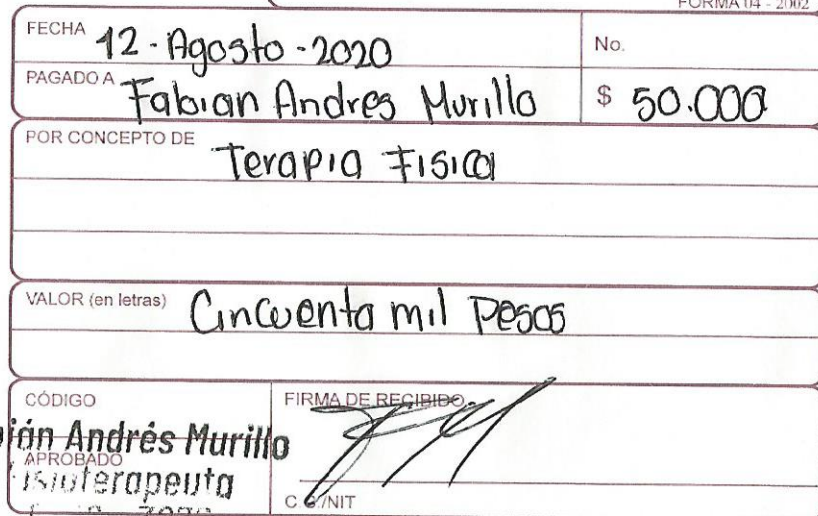 FORMA 04 - 2002
FECHA 12 - Agosto - 2020
No.
PAGADO A Fabian Andres Murillo
$ 50.000
POR CONCEPTO DE Terapia Fisica
VALOR (en letras) Cincuenta mil Pesos
CÓDIGO
FIRMA DE RECIBIDO
Andrés Murillo
APROBADO
C.C./NIT